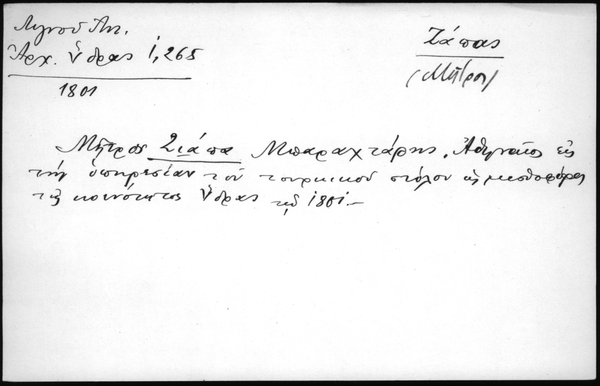 Λιγνοῦ Ἀντ.
Ἀρχ. Ὕδρας Ι, 265
1801
Ζάπας
(Μῆτρος)
Μῆτρος Ζιάπα Μπαραχτάρης, Ἀθηναῖος εἰς
τὴν ὑπηρεσίαν τοῦ τουρκικοῦ στόλου ὡς μισθοφόρος
τῆς κοινότητος Ὕδρας τῷ 1801.–